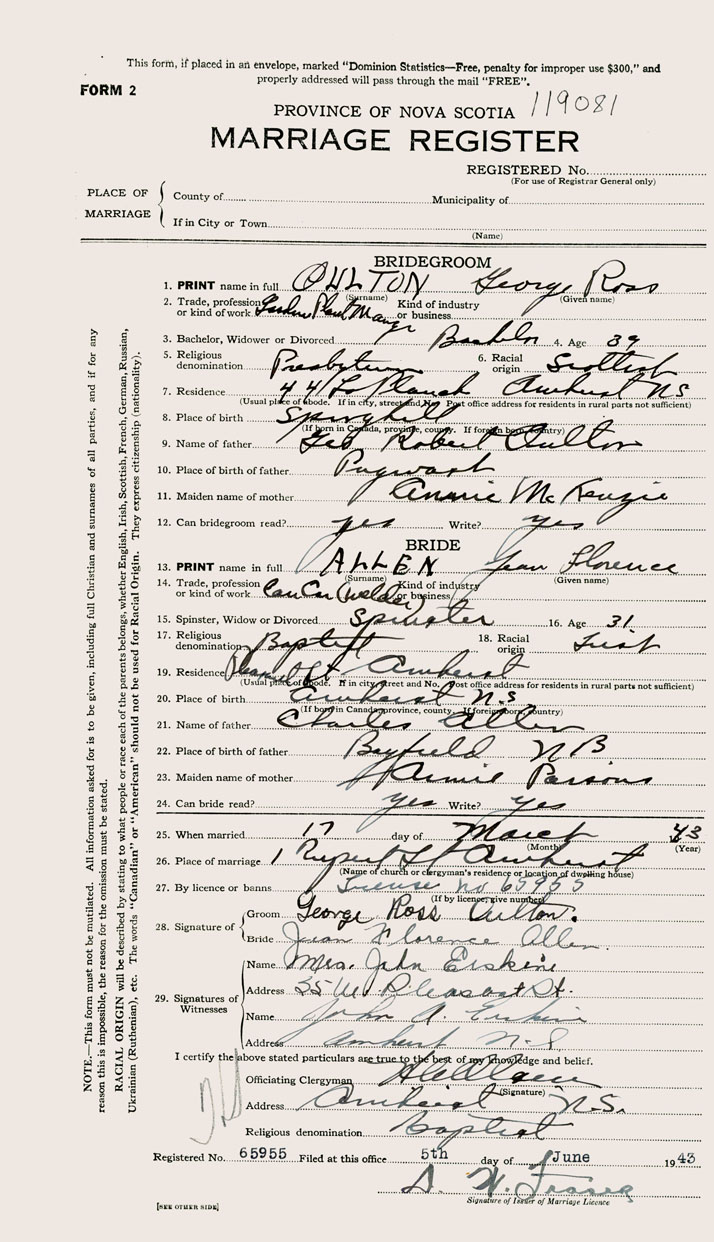 This form, if placed in an envelope, marked "Dominion Statistics—Free, penalty for improper use $300," and
properly addressed will pass through the mail "FREE".
FORM 2
PROVINCE OF NOVA SCOTIA 119081
MARRIAGE REGISTER
REGISTERED No.
(For use of Registrar General only)
PLACE OF MARRIAGE
County of Municipality of
If in City or Town
(Name)
BRIDEGROOM
1. PRINT name in full OULTON George Ross
(Surname) (Given name)
2. Trade, profession or kind of work Kind of industry or business
3. Bachelor, Widower or Divorced Bachelor 4. Age 39
5. Religious denomination Presbyterian 6. Racial origin Scottish
7. Residence 44 LaPlanch Amherst NS
(Usual place of abode. If in city, street and No. Post office address for residents in rural parts not sufficient)
8. Place of birth Springhill
(If born in Canada, province, county. If foreign born, country)
9. Name of father Geo Robert Oulton
10. Place of birth of father Pugwash
11. Maiden name of mother Annie McKenzie
12. Can bridegroom read? yes Write? yes
BRIDE
13. PRINT name in full ALLEN Jean Florence
(Surname) (Given name)
14. Trade, profession or kind of work Can Car (welder) Kind of industry or business
15. Spinster, Widow or Divorced Spinster 16. Age 31
17. Religious denomination Baptist 18. Racial origin Irish
19. Residence Pleasant St Amherst
(Usual place of abode. If in city, street and No. Post office address for residents in rural parts not sufficient)
20. Place of birth Amherst N.S
(If born in Canada province, county. If foreign born country)
21. Name of father Charles Allen
22. Place of birth of father Bayfield NB
23. Maiden name of mother Annie Parsons
24. Can bride read? yes Write? yes
25. When married 17 day of March 43
(Month) (Year)
26. Place of marriage 1 Rupert St Amherst
(Name of church or clergyman's residence or location of dwelling house)
27. By licence or banns License no 65955
(If by licence, give number)
28. Signature of
Groom George Ross Oulton.
Bride Jean Florence Allen.
29. Signatures of Witnesses
Name Mrs. John Erskine
Address 35 W. Pleasant St.
Name John A. Erskine
Address Amherst N-S
I certify the above stated particulars are true to the best of my knowledge and belief.
Officiating Clergyman
(Signature)
Address Amherst N.S.
Religious denomination Baptist
Registered No. 65955 Filed at this office 5th day of June 1943
D. W. Fraser
Signature of Issuer of Marriage Licence
[SEE OTHER SIDE]
NOTE.—This form must not be mutilated. All information asked for is to be given, including full Christian and surnames of all parties, and if for any
reason this is impossible, the reason for the omission must be stated.
RACIAL ORIGIN will be described by stating to what people or race each of the parents belongs, whether English, Irish, Scottish, French, German, Russian,
Ukrainian (Ruthenian), etc. The words "Canadian" or "American" should not be used for Racial Origin. They express citizenship (nationality).